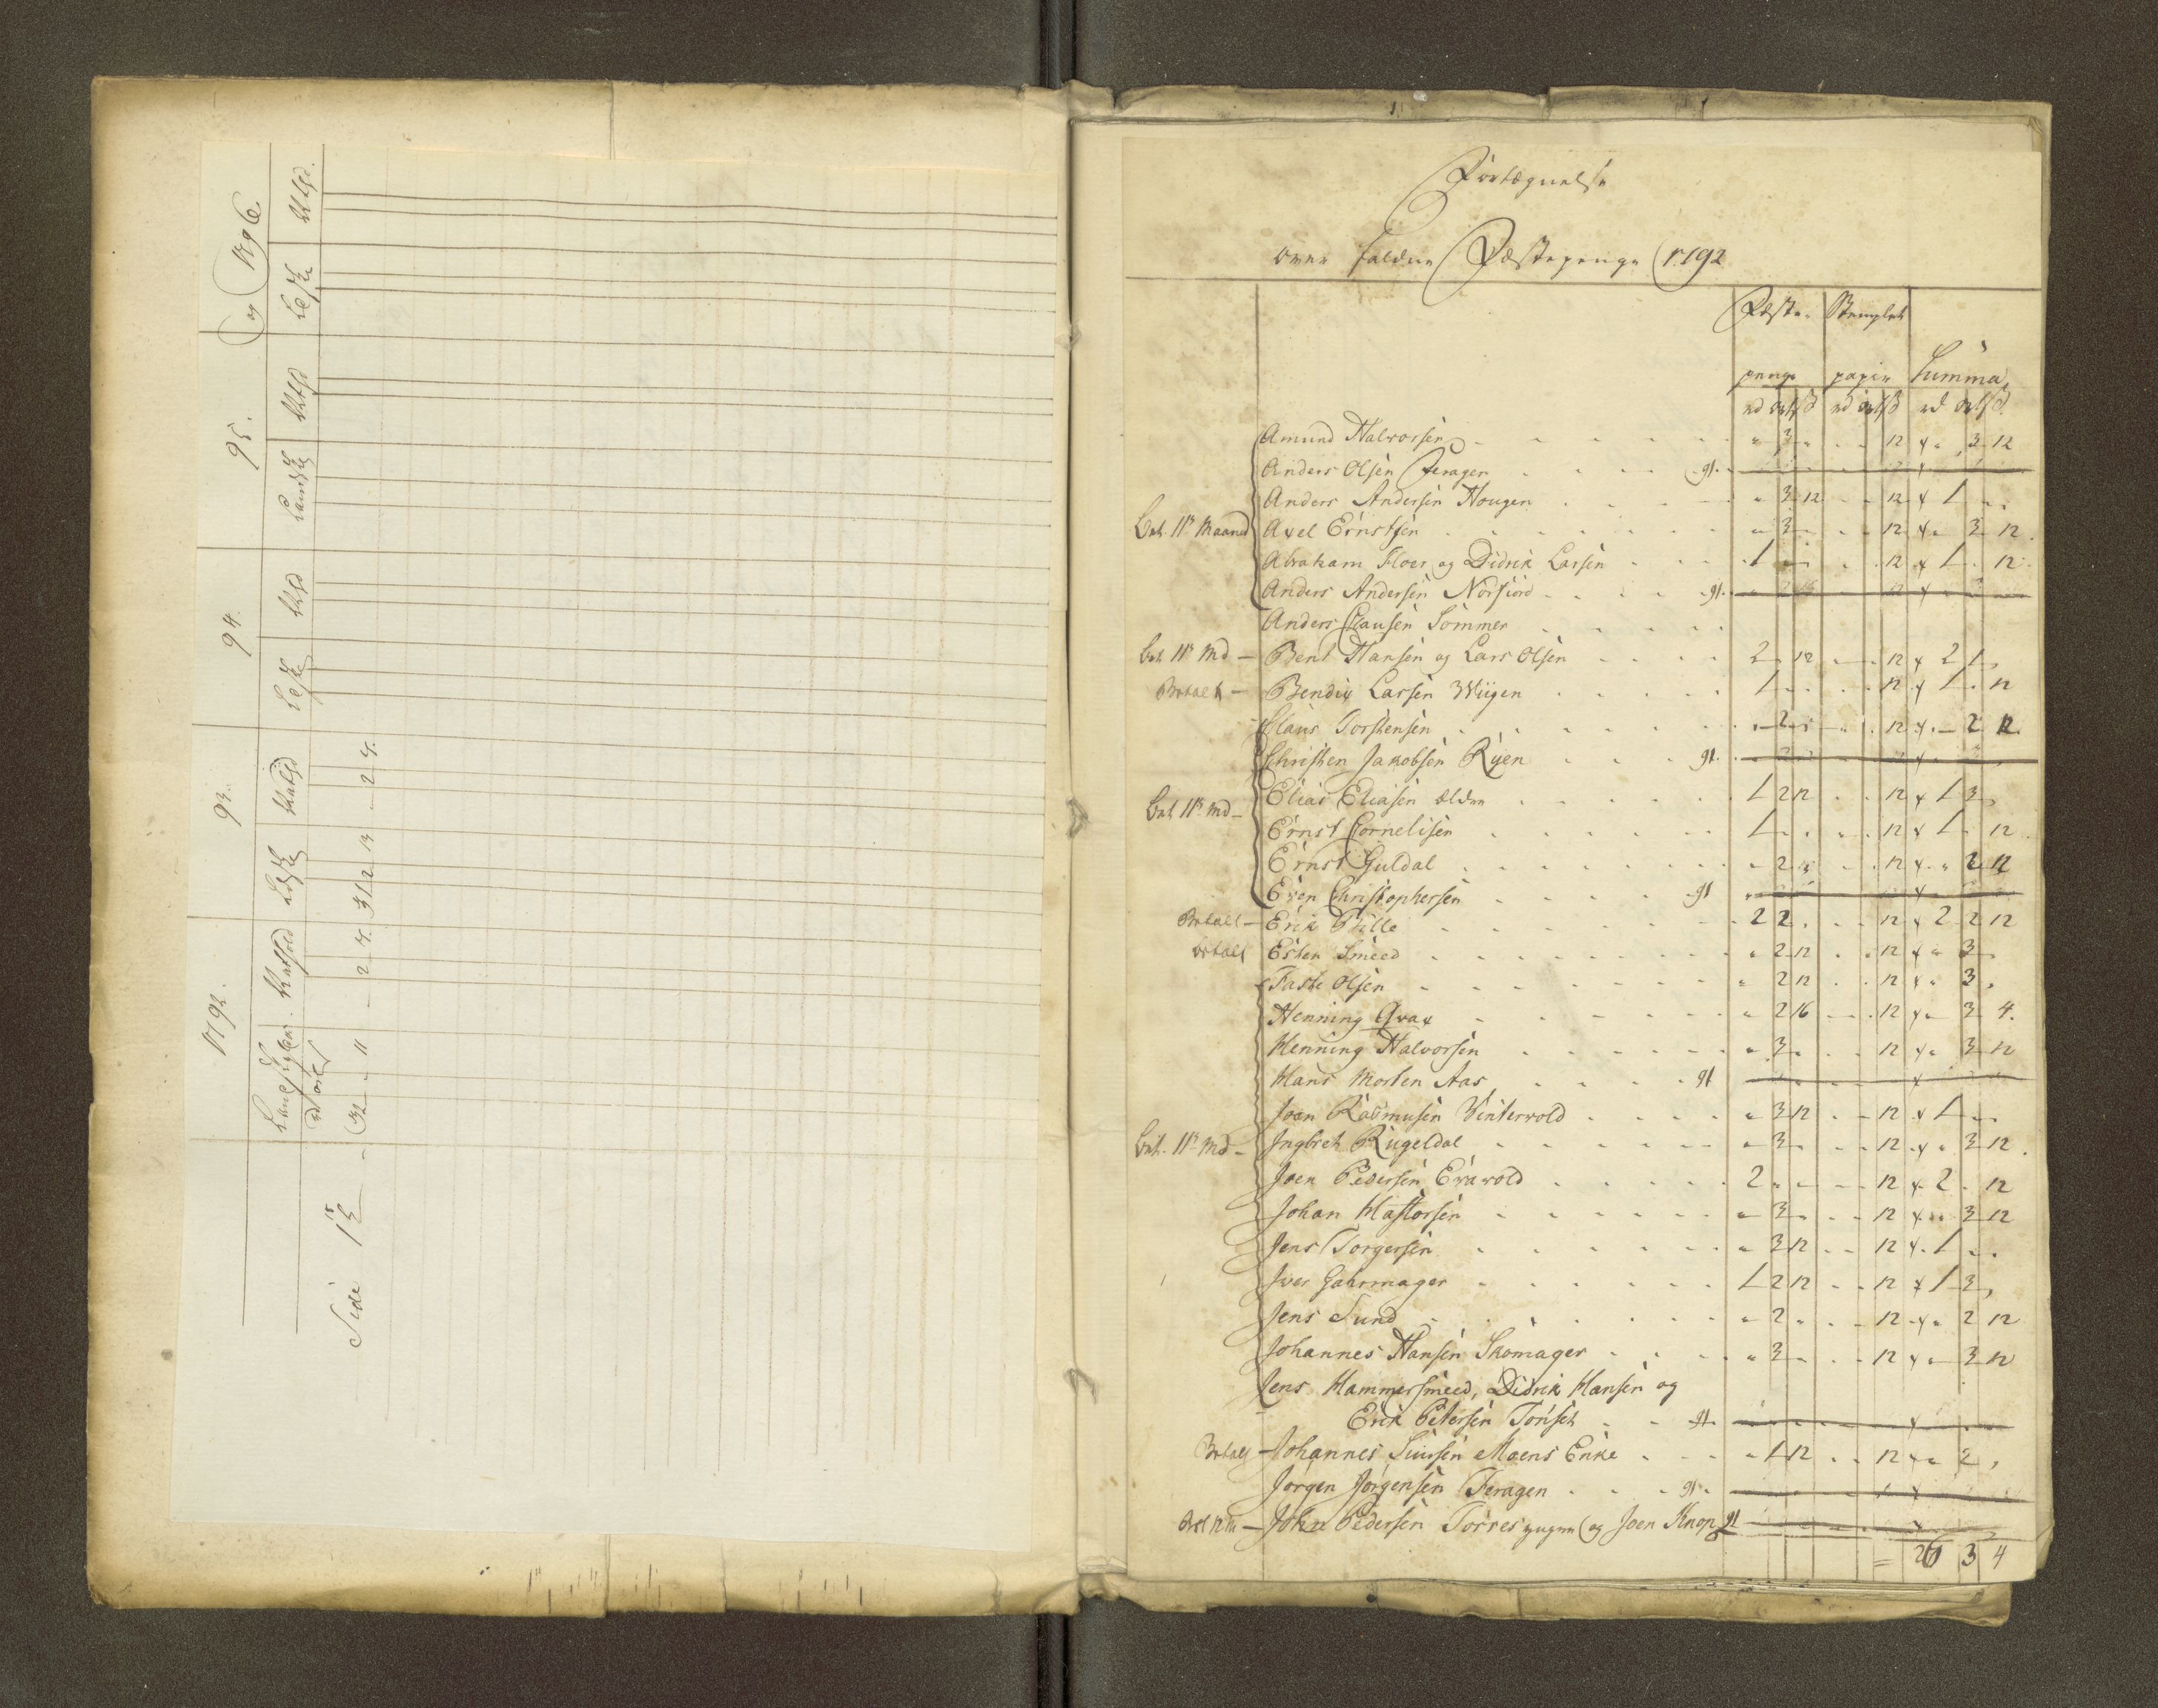 1792. 93. 94. 95. og 1796
Side 1ste - 32 - 11 - 2 4. 31 2 13 - 2 4.
Fortegnelse
over faldne Fæstepenge 1792
Fæste- Stemplet
penge papir Summa
rd ort ß rd ort ß rd ort ß
Amund Halvorsen " 3 " - - 12 x " 3 12
Anders Olsen Feragen gl.
Anders Andersen Hougen " 3 12 - - 12 x 1 " "
Bet. 11te Maaned Axel Ernstsen " 3 - - - 12 x " 3 12.
Abraham Floer og Didrik Larsen 1 - - - - 12 x 1 - 12
Anders Andersen Norfiord gl. " 2 16 12 x " 3
Anders Clausen Sommer
Bet. 11te Md - Bent Hansen og Lars Olsen 2 - 12 - - 12 x 2 1 "
Betalt - Bendix Larsen Wiigen 1 - - - - 12 x 1 - 12
Claus Torstensen " 2 - - - 12 x " 2 12.
Christen Jakobsen Ryen gl.
Elias Eliasen ældre 1 2 12 - - 12 x 1 3 "
Bet. 11te Md - Ernst Cornelisen 1 - - - - 12 x 1 - 12
Ernst Guldal " 2 - - - 12 x " 2 12
Even Christophersen gl
Betalt - Erik Pille 2 2 - - - 12 x 2 2 12
betalt Esten Smeed " 2 12 - - 12 x " 3 -
Faste Olsen " 2 12 - - 12 x " 3 "
Henning Qvax " 2 16 - - 12 x " 3 4.
Henning Halvorsen " 3 - - - 12 x " 3 12
Hans Morten Aas gl
Joen Rasmusen Vintervold " 3 12 - - 12 x 1 - "
Bet. 11te Md - Ingbret Rugeldal " 3 - - - 12 x " 3 12.
Joen Pedersen Evavold 2 - - - - 12 x 2 - 12
Johan Hastorsen " 3 - - - 12 x " 3 12
Jens Torgersen " 3 12 - - 12 x 1 - "
Iver Gahrmager 1 2 12 - - 12 x 1 3 "
Jens Sund " 2 - - - 12 x " 2 12
Johannes Hansen Skomager " 3 - - - 12 x " 3 12
Jens Hammersmeed, Didrik Hansen og
Erik Petersen Tønset gl.
Betalt - Johannes Siursen Moens Enke " 1 12 - - 12 x " 2 "
Jørgen Jørgensen Feragen gl.
John Pedersen Torres og Joen Knop gl
= 26 3 4